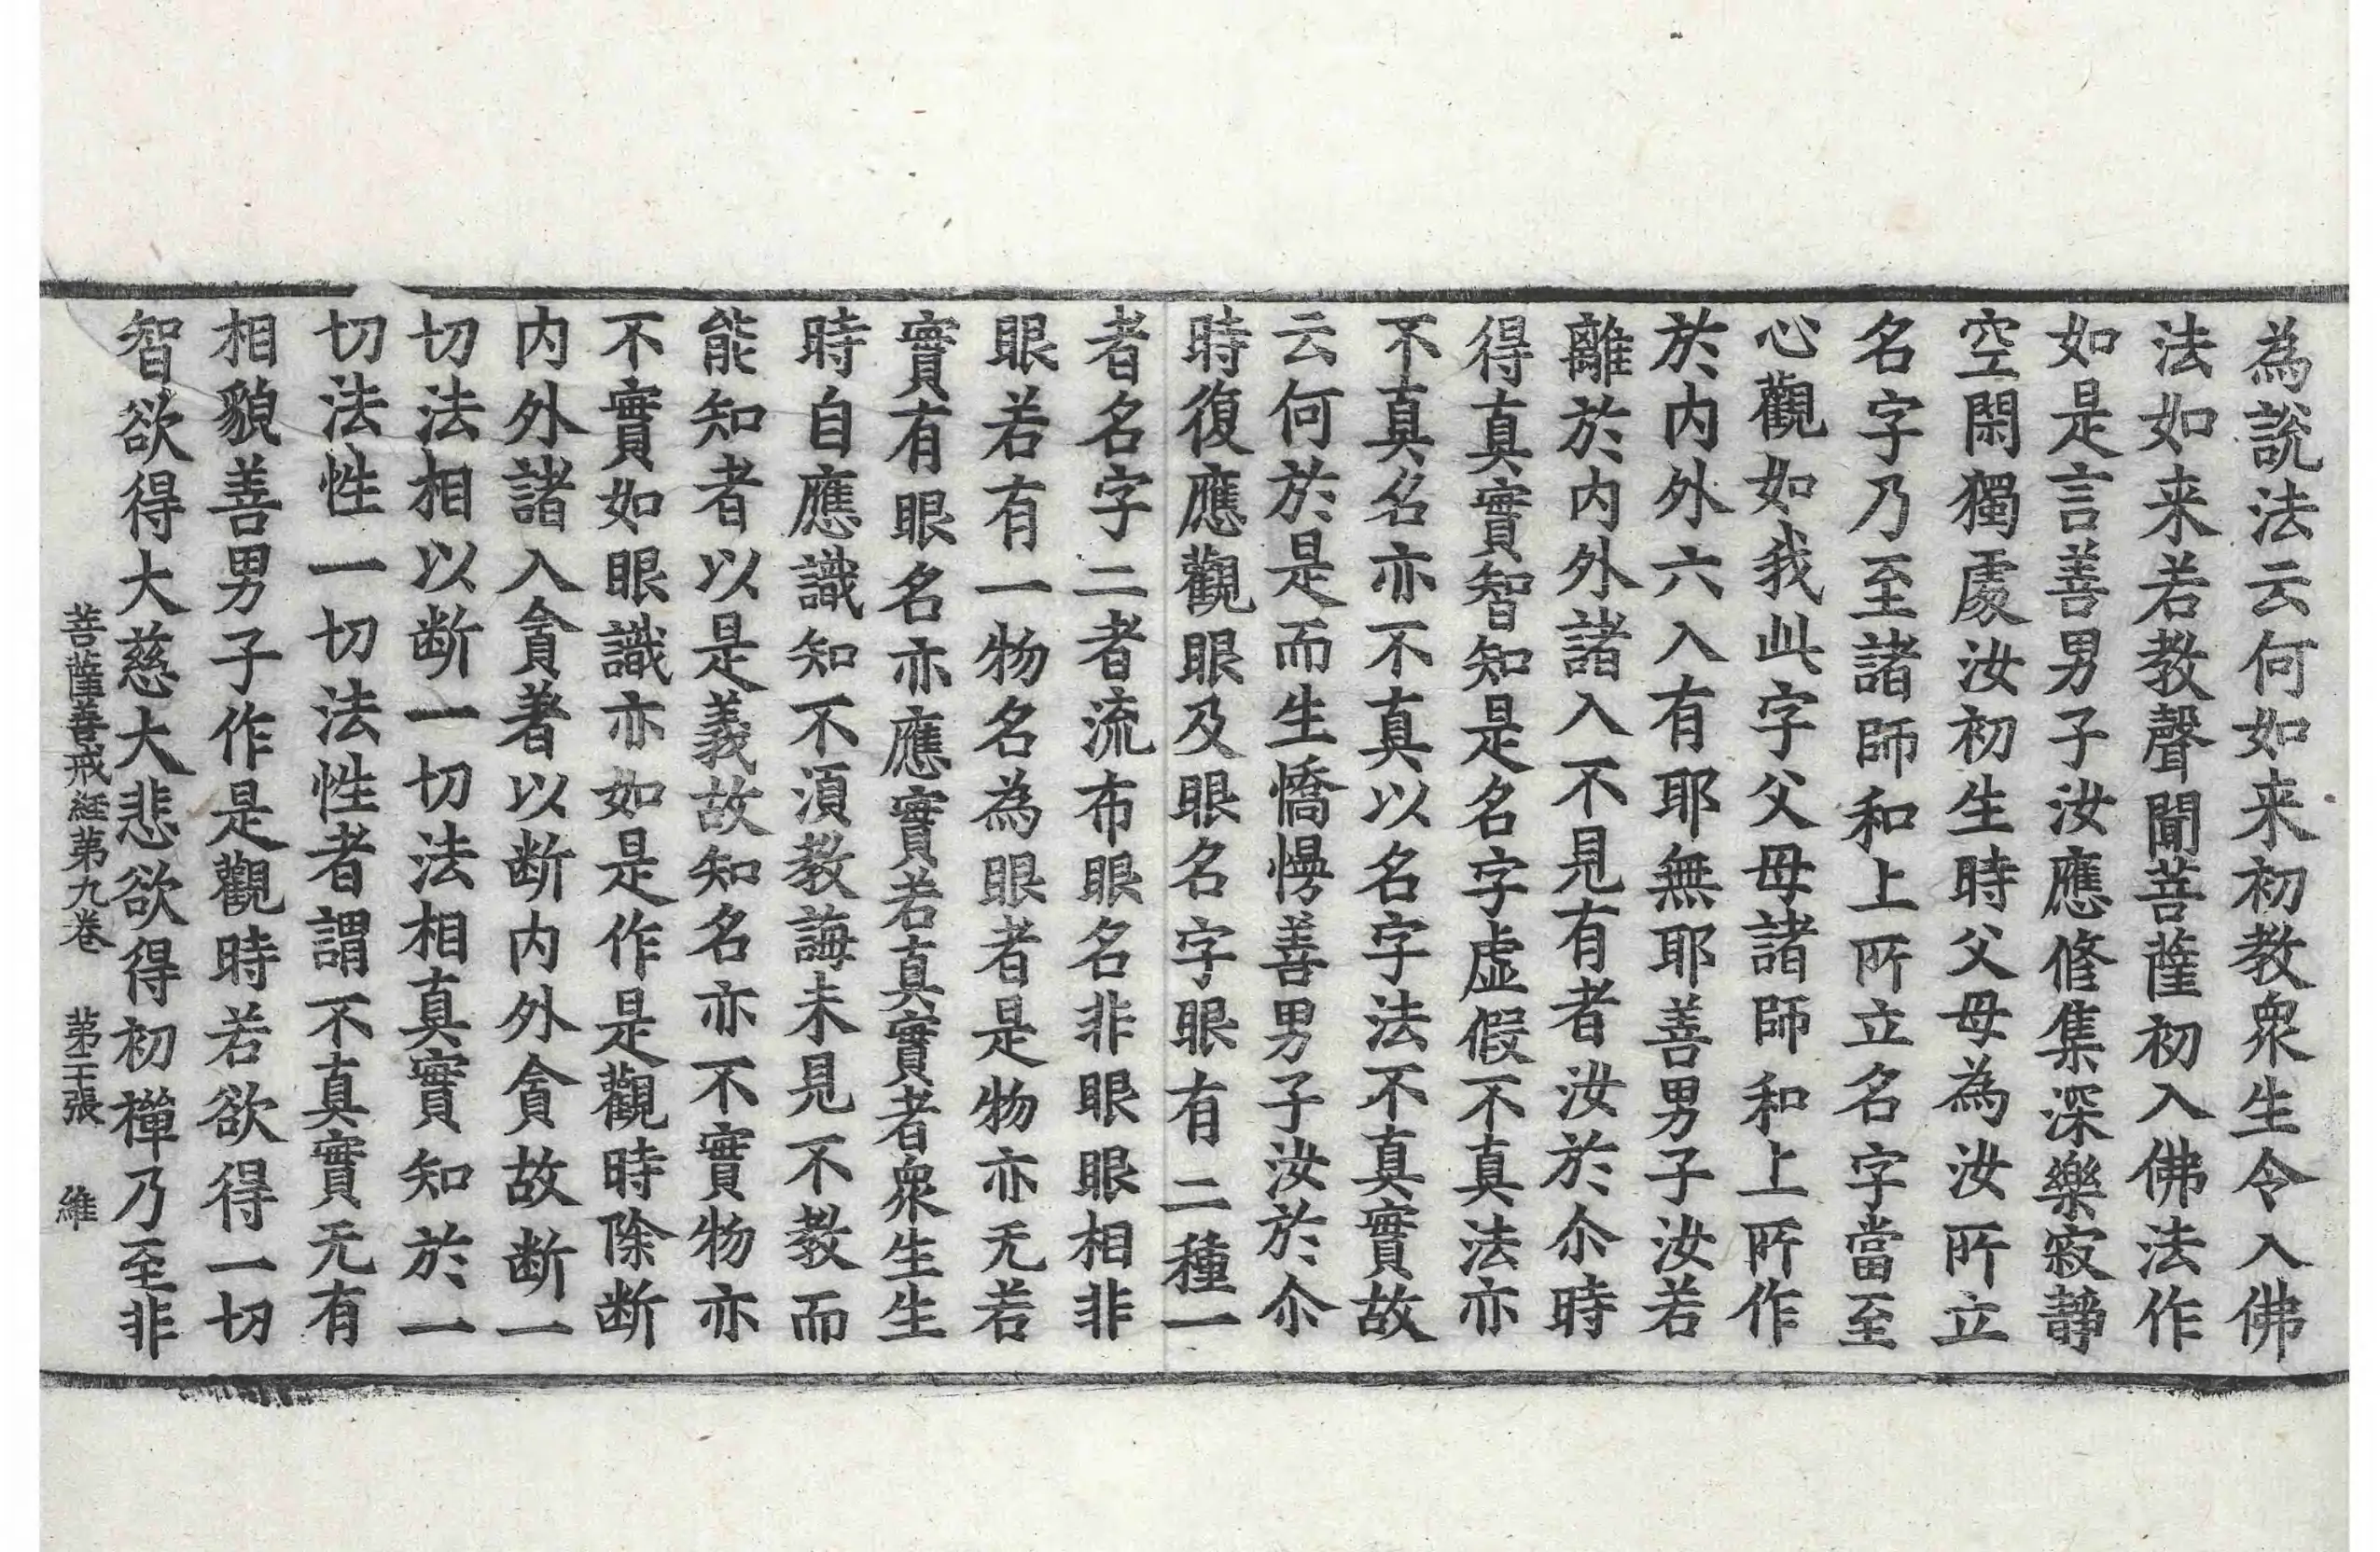 為說法云何如来初教衆生令入佛
法如来若教聲聞菩薩初入佛法作
如是言善男子汝應修集深樂寂静
空閑獨處汝初生時父母為汝所立
名字乃至諸師和上所立名字當至
心觀如我此字父母諸師和上所作
於内外六入有耶無耶善男子汝若
離於内外諸入不見有者汝於尒時
得真實智知是名字虚假不真法亦
不真名亦不真以名字法不真實故
云何於是而生憍慢善男子汝於尒
時復應觀眼及眼名字眼有二種一
者名字二者流布眼名非眼眼相非
眼若有一物名為眼者是物亦无若
實有眼名亦應實若真實者衆生生
時自應識知不湏教誨未見不教而
能知者以是義故知名亦不實物亦
不實如眼識亦如是作是觀時除断
内外諸入貪著以断内外貪故断一
切法相以断一切法相真實知於一
切法性一切法性者謂不真實无有
相貌善男子作是觀時若欲得一切
智欲得大慈大悲欲得初禪乃至非
菩薩善戒経苐九卷　苐二十張　維